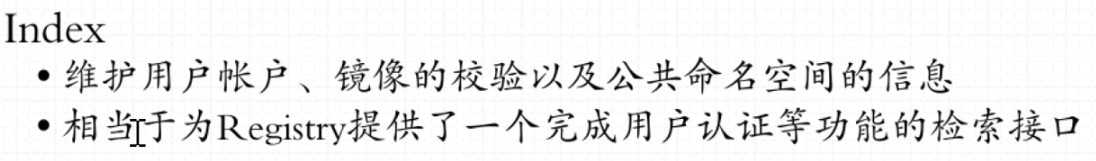 Index
• 维护用户帐户、镜像的校验以及公共命名空间的信息
• 相当于为Registry提供了一个完成用户认证等功能的检索接口